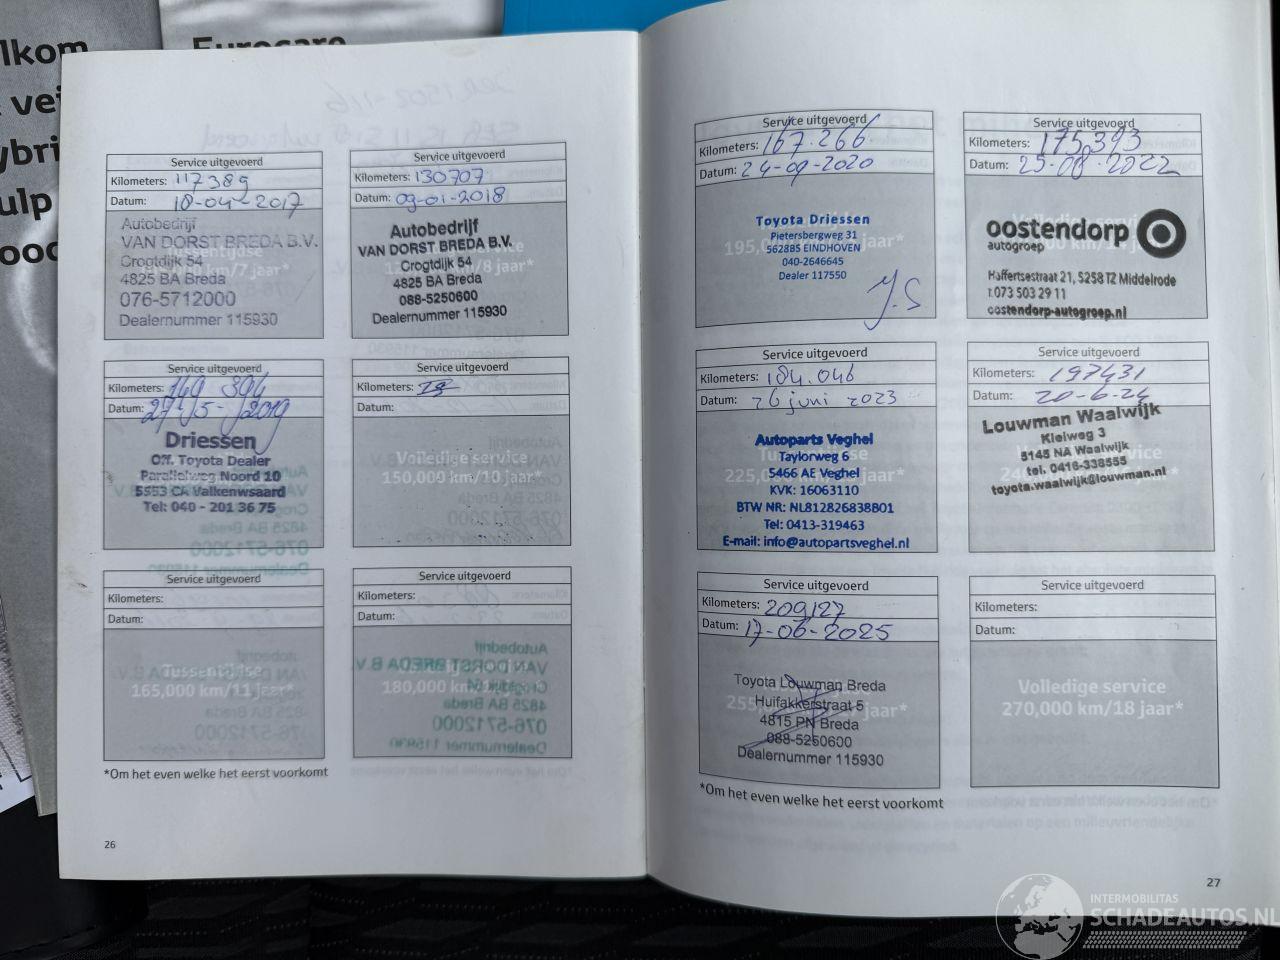 lkom
vei
ybri
ulp
ood
Eurocare
Service uitgevoerd
Kilometers: 117389
Datum: 18-04-2017
Autobedrijf
VAN DORST BREDA B.V.
Crogtdijk 54
4825 BA Breda
076-5712000
Dealernummer 115930
Service uitgevoerd
Kilometers: 130707
Datum: 09-01-2018
Autobedrijf
VAN DORST BREDA B.V.
Crogtdijk 54
4825 BA Breda
088-5250600
Dealernummer 115930
Service uitgevoerd
Kilometers: 149 394
Datum: 27-5-2019
Driessen
Off. Toyota Dealer
Parallelweg Noord 10
5553 CA Valkenwsaard
Tel: 040 - 201 36 75
Service uitgevoerd
Kilometers:
Datum:
Volledige service
150,000 km/10 jaar*
Service uitgevoerd
Kilometers:
Datum:
Tussentijdse
165,000 km/11 jaar*
Service uitgevoerd
Kilometers:
Datum:
180,000 km/
*Om het even welke het eerst voorkomt
26
Service uitgevoerd
Kilometers: 167.266
Datum: 24-09-2020
Toyota Driessen
Pietersbergweg 31
5628BS EINDHOVEN
040-2646645
Dealer 117550
Service uitgevoerd
Kilometers: 175.393
Datum: 25-08-2022
oostendorp
autogroep
Haffertsestraat 21, 5258 TZ Middelrode
T.073 503 29 11
oostendorp-autogroep.nl
Service uitgevoerd
Kilometers: 184.046
Datum: 26 juni 2023
Autoparts Veghel
Taylorweg 6
5466 AE Veghel
KVK: 16063110
BTW NR: NL812826838B01
Tel: 0413-319463
E-mail: info@autopartsveghel.nl
Service uitgevoerd
Kilometers: 197431
Datum: 20-6-24
Louwman Waalwijk
Kleiweg 3
5145 NA Waalwijk
tel. 0416-338555
toyota.waalwijk@louwman.nl
Service uitgevoerd
Kilometers: 209127
Datum: 17-06-2025
Toyota Louwman Breda
Huifakkerstraat 5
4815 PN Breda
088-5250600
Dealernummer 115930
Service uitgevoerd
Kilometers:
Datum:
Volledige service
270,000 km/18 jaar*
*Om het even welke het eerst voorkomt
27
INTERMOBILITAS
SCHADEAUTOS.NL